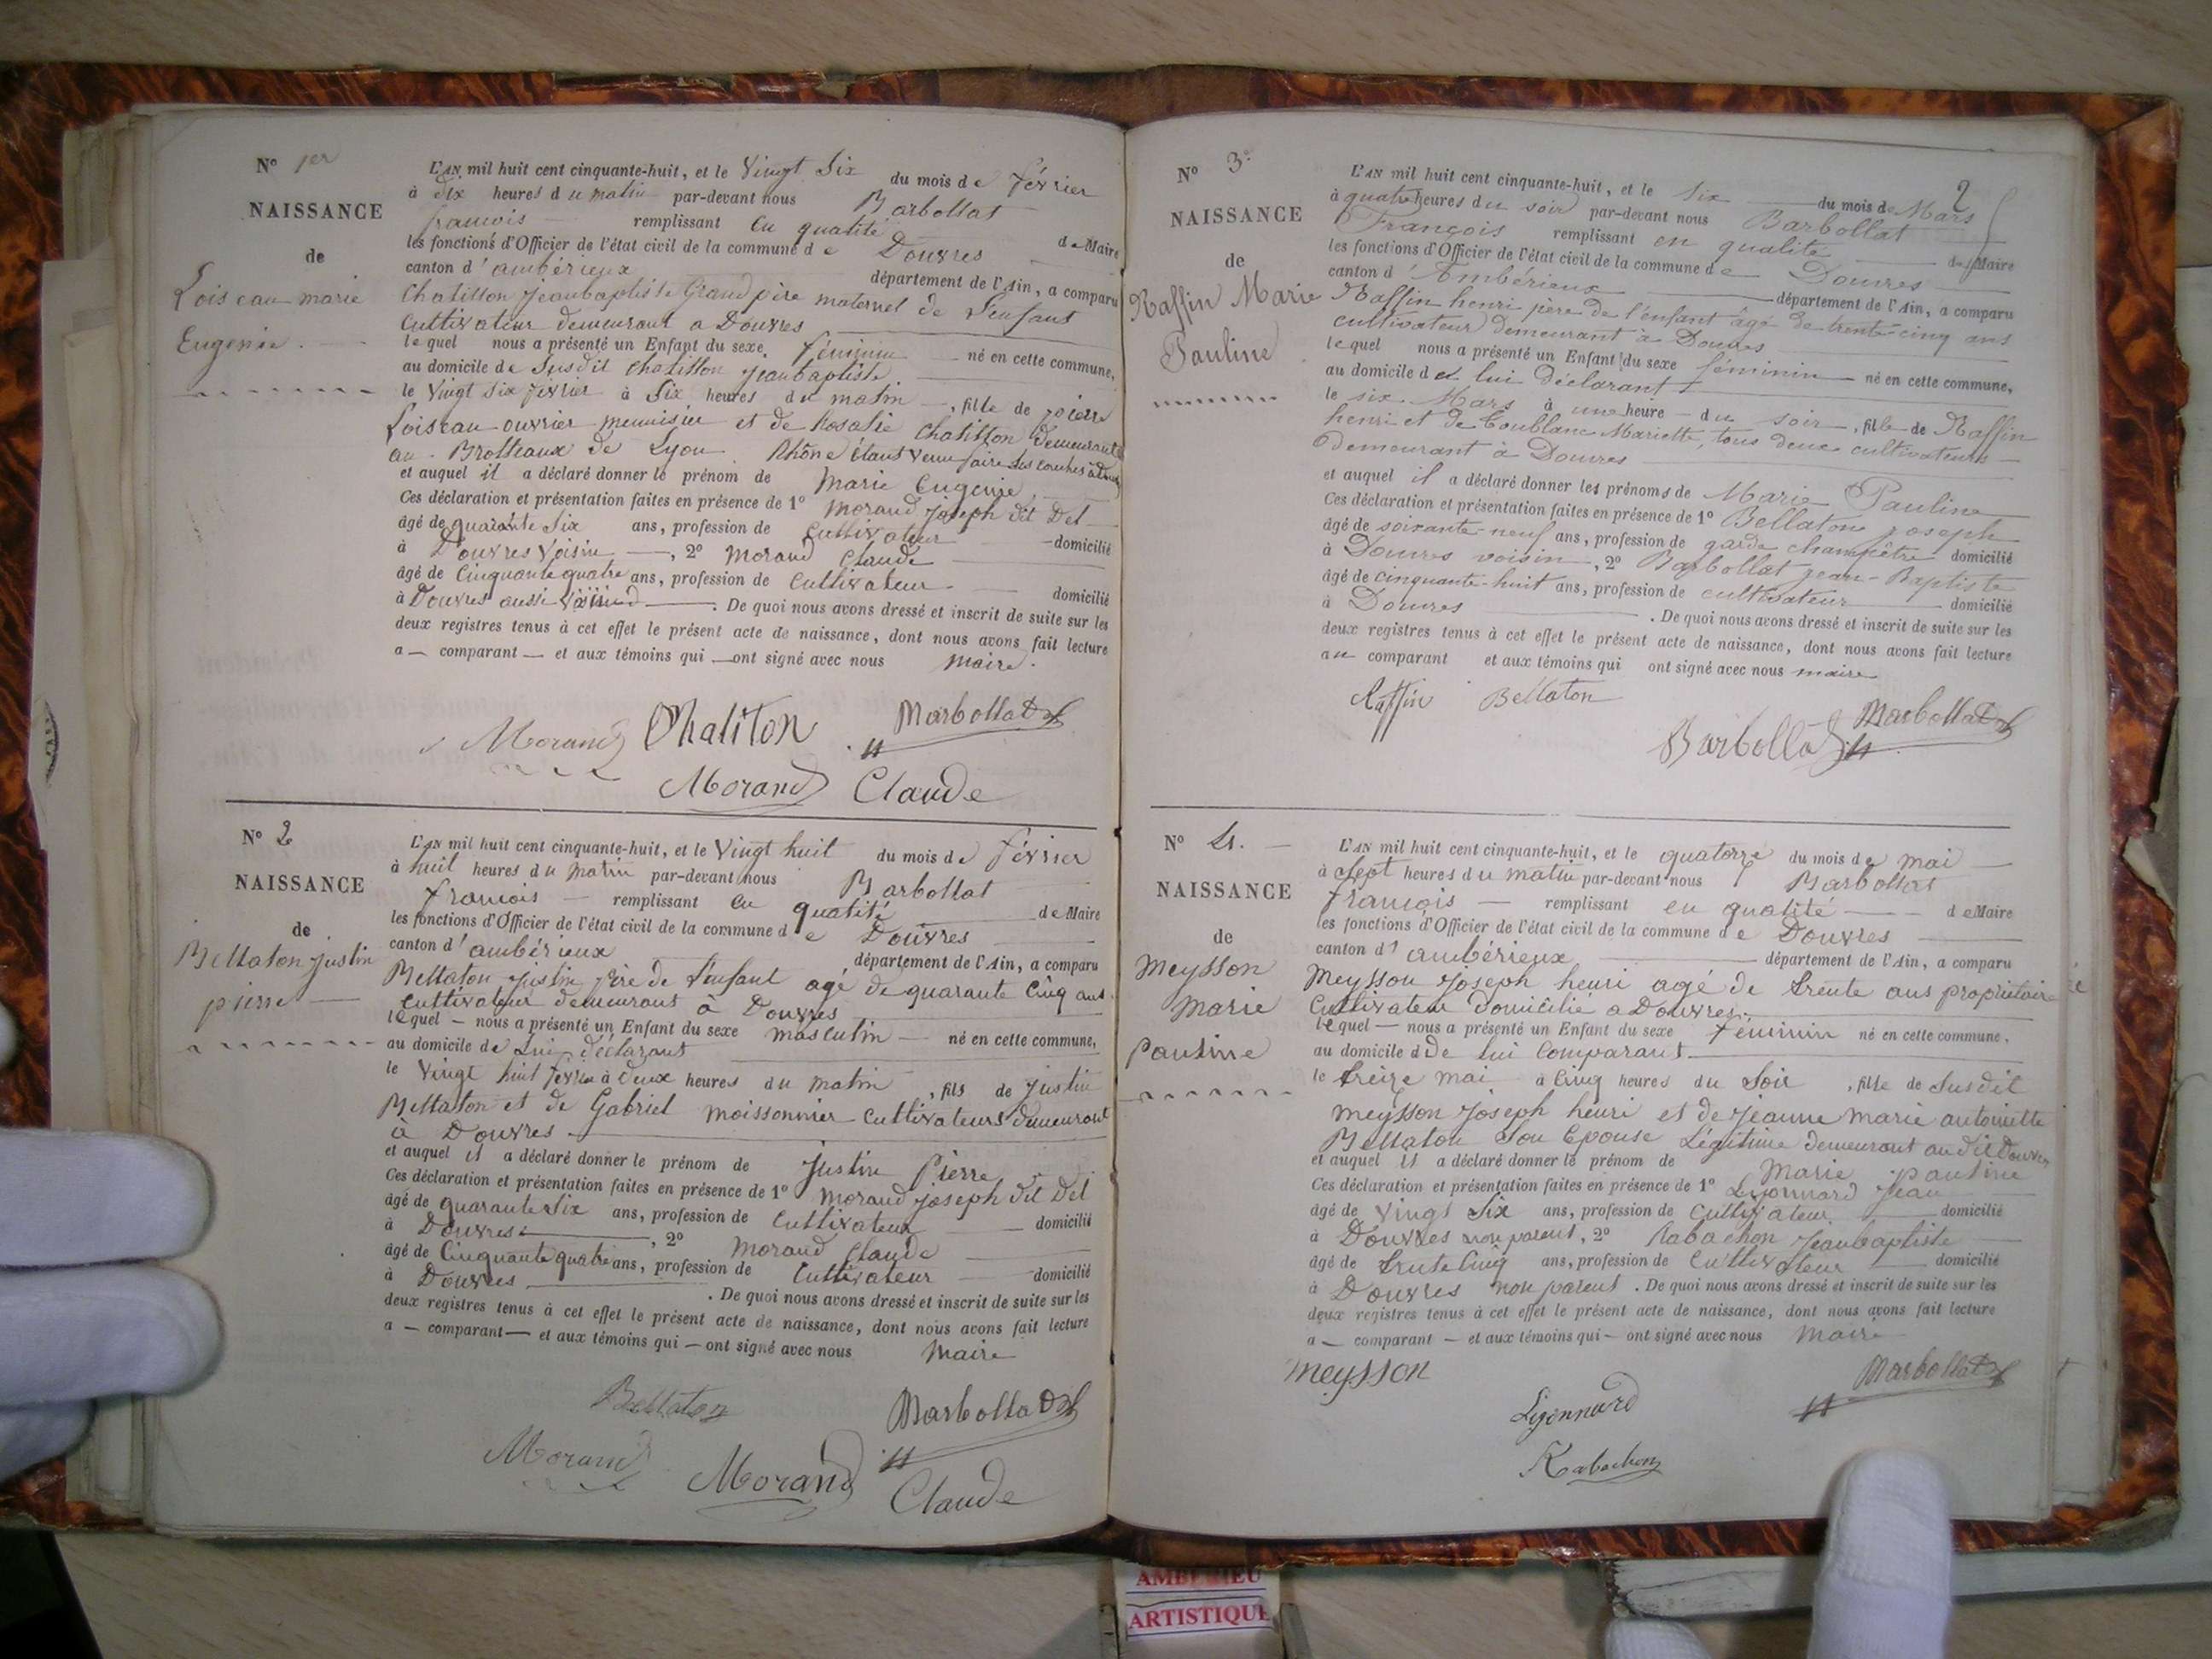 N° 1er
NAISSANCE
de
Loiseau marie
Eugenie.
L'AN mil huit cent cinquante-huit, et le Vingt Six du mois de février
à dix heures du matin par-devant nous Barbollat
françois remplissant en qualité de Maire
les fonctions d'Officier de l'état civil de la commune de Douvres
canton d'ambérieux département de l'Ain, a comparu
Chatillon Jeanbaptiste Grand père maternel de l'enfant
Cultivateur demeurant a Douvres
lequel nous a présenté un Enfant du sexe féminin né en cette commune,
au domicile de Susdit Chatillon Jeanbaptiste
le Vingt Six février à Six heures du matin, fille de pierre
Loiseau ouvrier menuisier et de Rosalie Chatillon demeurant
au Brotteaux de Lyon Rhône étant venu faire ses couches
et auquel il a déclaré donner le prénom de Marie Eugenie
Ces déclaration et présentation faites en présence de 1° Morand Joseph dit Del
âgé de quarante Six ans, profession de Cultivateur domicilié
à Douvres Voisin, 2° Morand Claude
âgé de Cinquante quatre ans, profession de Cultivateur domicilié
à Douvres aussi voisin. De quoi nous avons dressé et inscrit de suite sur les
deux registres tenus à cet effet le présent acte de naissance, dont nous avons fait lecture
a comparant et aux témoins qui ont signé avec nous maire.
Morand Chatillon Barbollat
Morand Claude
N° 2
NAISSANCE
de
Bellaton Justin
pierre
L'AN mil huit cent cinquante-huit, et le Vingt huit du mois de février
à huit heures du matin par-devant nous Barbollat
françois remplissant en qualité de Maire
les fonctions d'Officier de l'état civil de la commune de Douvres
canton d'ambérieux département de l'Ain, a comparu
Bellaton Justin père de l'enfant agé de quarante Cinq ans
Cultivateur demeurant à Douvres
lequel nous a présenté un Enfant du sexe masculin né en cette commune,
au domicile de Lui déclarant
le Vingt huit février à deux heures du matin, fils de Justin
Bellaton et de Gabriel moissonnier Cultivateurs demeurant
à Douvres
et auquel il a déclaré donner le prénom de Justin Pierre
Ces déclaration et présentation faites en présence de 1° Morand Joseph dit Del
âgé de quarante Six ans, profession de Cultivateur domicilié
à Douvres, 2° Morand Claude
âgé de Cinquante quatre ans, profession de Cultivateur domicilié
à Douvres. De quoi nous avons dressé et inscrit de suite sur les
deux registres tenus à cet effet le présent acte de naissance, dont nous avons fait lecture
a comparant et aux témoins qui ont signé avec nous Maire
Bellaton Barbollat
Morand Morand Claude
2
N° 3
NAISSANCE
de
Raffin Marie
Pauline
L'AN mil huit cent cinquante-huit, et le six du mois de Mars
à quatre heures du soir par-devant nous Barbollat
François remplissant en qualité de Maire
les fonctions d'Officier de l'état civil de la commune de Douvres
canton d'Ambérieux département de l'Ain, a comparu
Raffin henri père de l'enfant âgé de trente-cinq ans
cultivateur demeurant à Douvres
lequel nous a présenté un Enfant du sexe féminin né en cette commune,
au domicile de lui déclarant
le six Mars à une heure du soir, fille de Raffin
henri et de Coublanc Mariette, tous deux cultivateurs
demeurant à Douvres
et auquel il a déclaré donner les prénoms de Marie Pauline
Ces déclaration et présentation faites en présence de 1° Bellaton joseph
âgé de soixante-neuf ans, profession de garde champêtre domicilié
à Douvres voisin, 2° Barbollat jean-Baptiste
âgé de cinquante-huit ans, profession de cultivateur domicilié
à Douvres. De quoi nous avons dressé et inscrit de suite sur les
deux registres tenus à cet effet le présent acte de naissance, dont nous avons fait lecture
au comparant et aux témoins qui ont signé avec nous maire
Raffin Bellaton Barbollat
Barbollat
N° 4.
NAISSANCE
de
Meysson
Marie
pauline
L'AN mil huit cent cinquante-huit, et le quatorze du mois de mai
à Sept heures du matin par-devant nous Barbollat
françois remplissant en qualité de Maire
les fonctions d'Officier de l'état civil de la commune de Douvres
canton d'ambérieux département de l'Ain, a comparu
Meysson Joseph henri agé de trente ans propriétaire
Cultivateur domicilié a Douvres.
lequel nous a présenté un Enfant du sexe féminin né en cette commune,
au domicile de de lui Comparant
le treize mai à Cinq heures du Soir, fille de Susdit
meysson Joseph henri et de Jeanne Marie antoinette
Bellaton Son Epouse Légitime demeurant au dit Douvres
et auquel il a déclaré donner le prénom de Marie pauline
Ces déclaration et présentation faites en présence de 1° Lyonnard Jean
âgé de Vingt Six ans, profession de Cultivateur domicilié
à Douvres non parent, 2° Rabachon Jeanbaptiste
âgé de trente Cinq ans, profession de Cultivateur domicilié
à Douvres non parent. De quoi nous avons dressé et inscrit de suite sur les
deux registres tenus à cet effet le présent acte de naissance, dont nous avons fait lecture
a comparant et aux témoins qui ont signé avec nous Maire
meysson Barbollat
Lyonnard
Rabachon
AMBERIEU
ARTISTIQUE